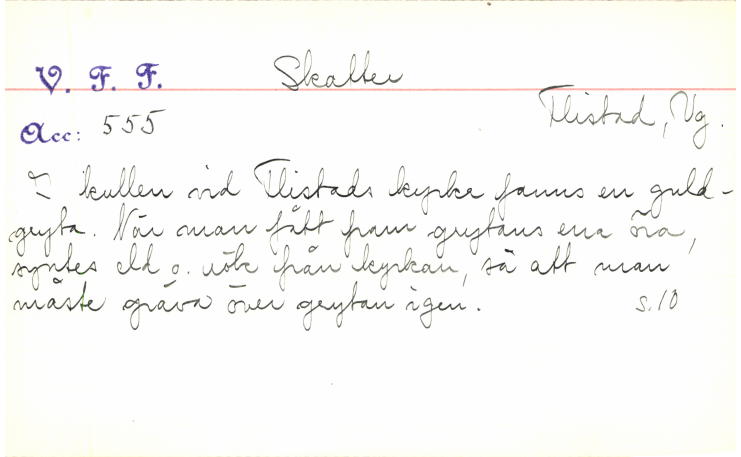 V. F. F. Skatter
Acc: 555 Flistad, Vg.
I kullen vid Flistads kyrka fanns en guld-
gryta. När man fått fram grytans ena öra,
syntes eld o. rök från kyrkan, så att man
måste gräva över grytan igen. s. 10